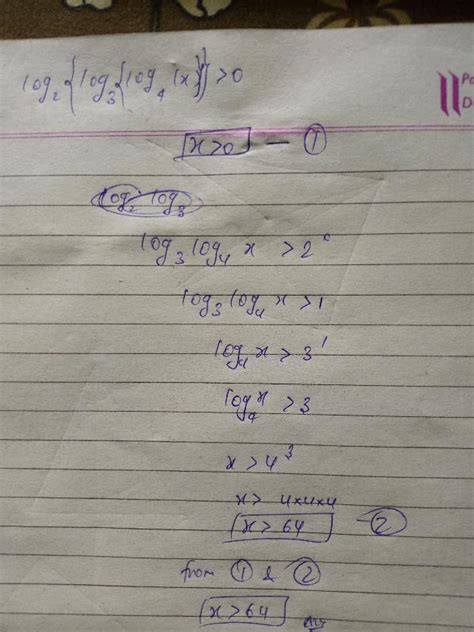 log₂{log₃{log₄(x)}}>0
Pa
D
x>0 — ①
log₂ log₃
log₃ log₄ x > 2⁰
log₃ log₄ x > 1
log₄ x > 3¹
log₄ x > 3
x > 4³
x > 4×4×4
x > 64 — ②
from ① & ②
x > 64 Ans